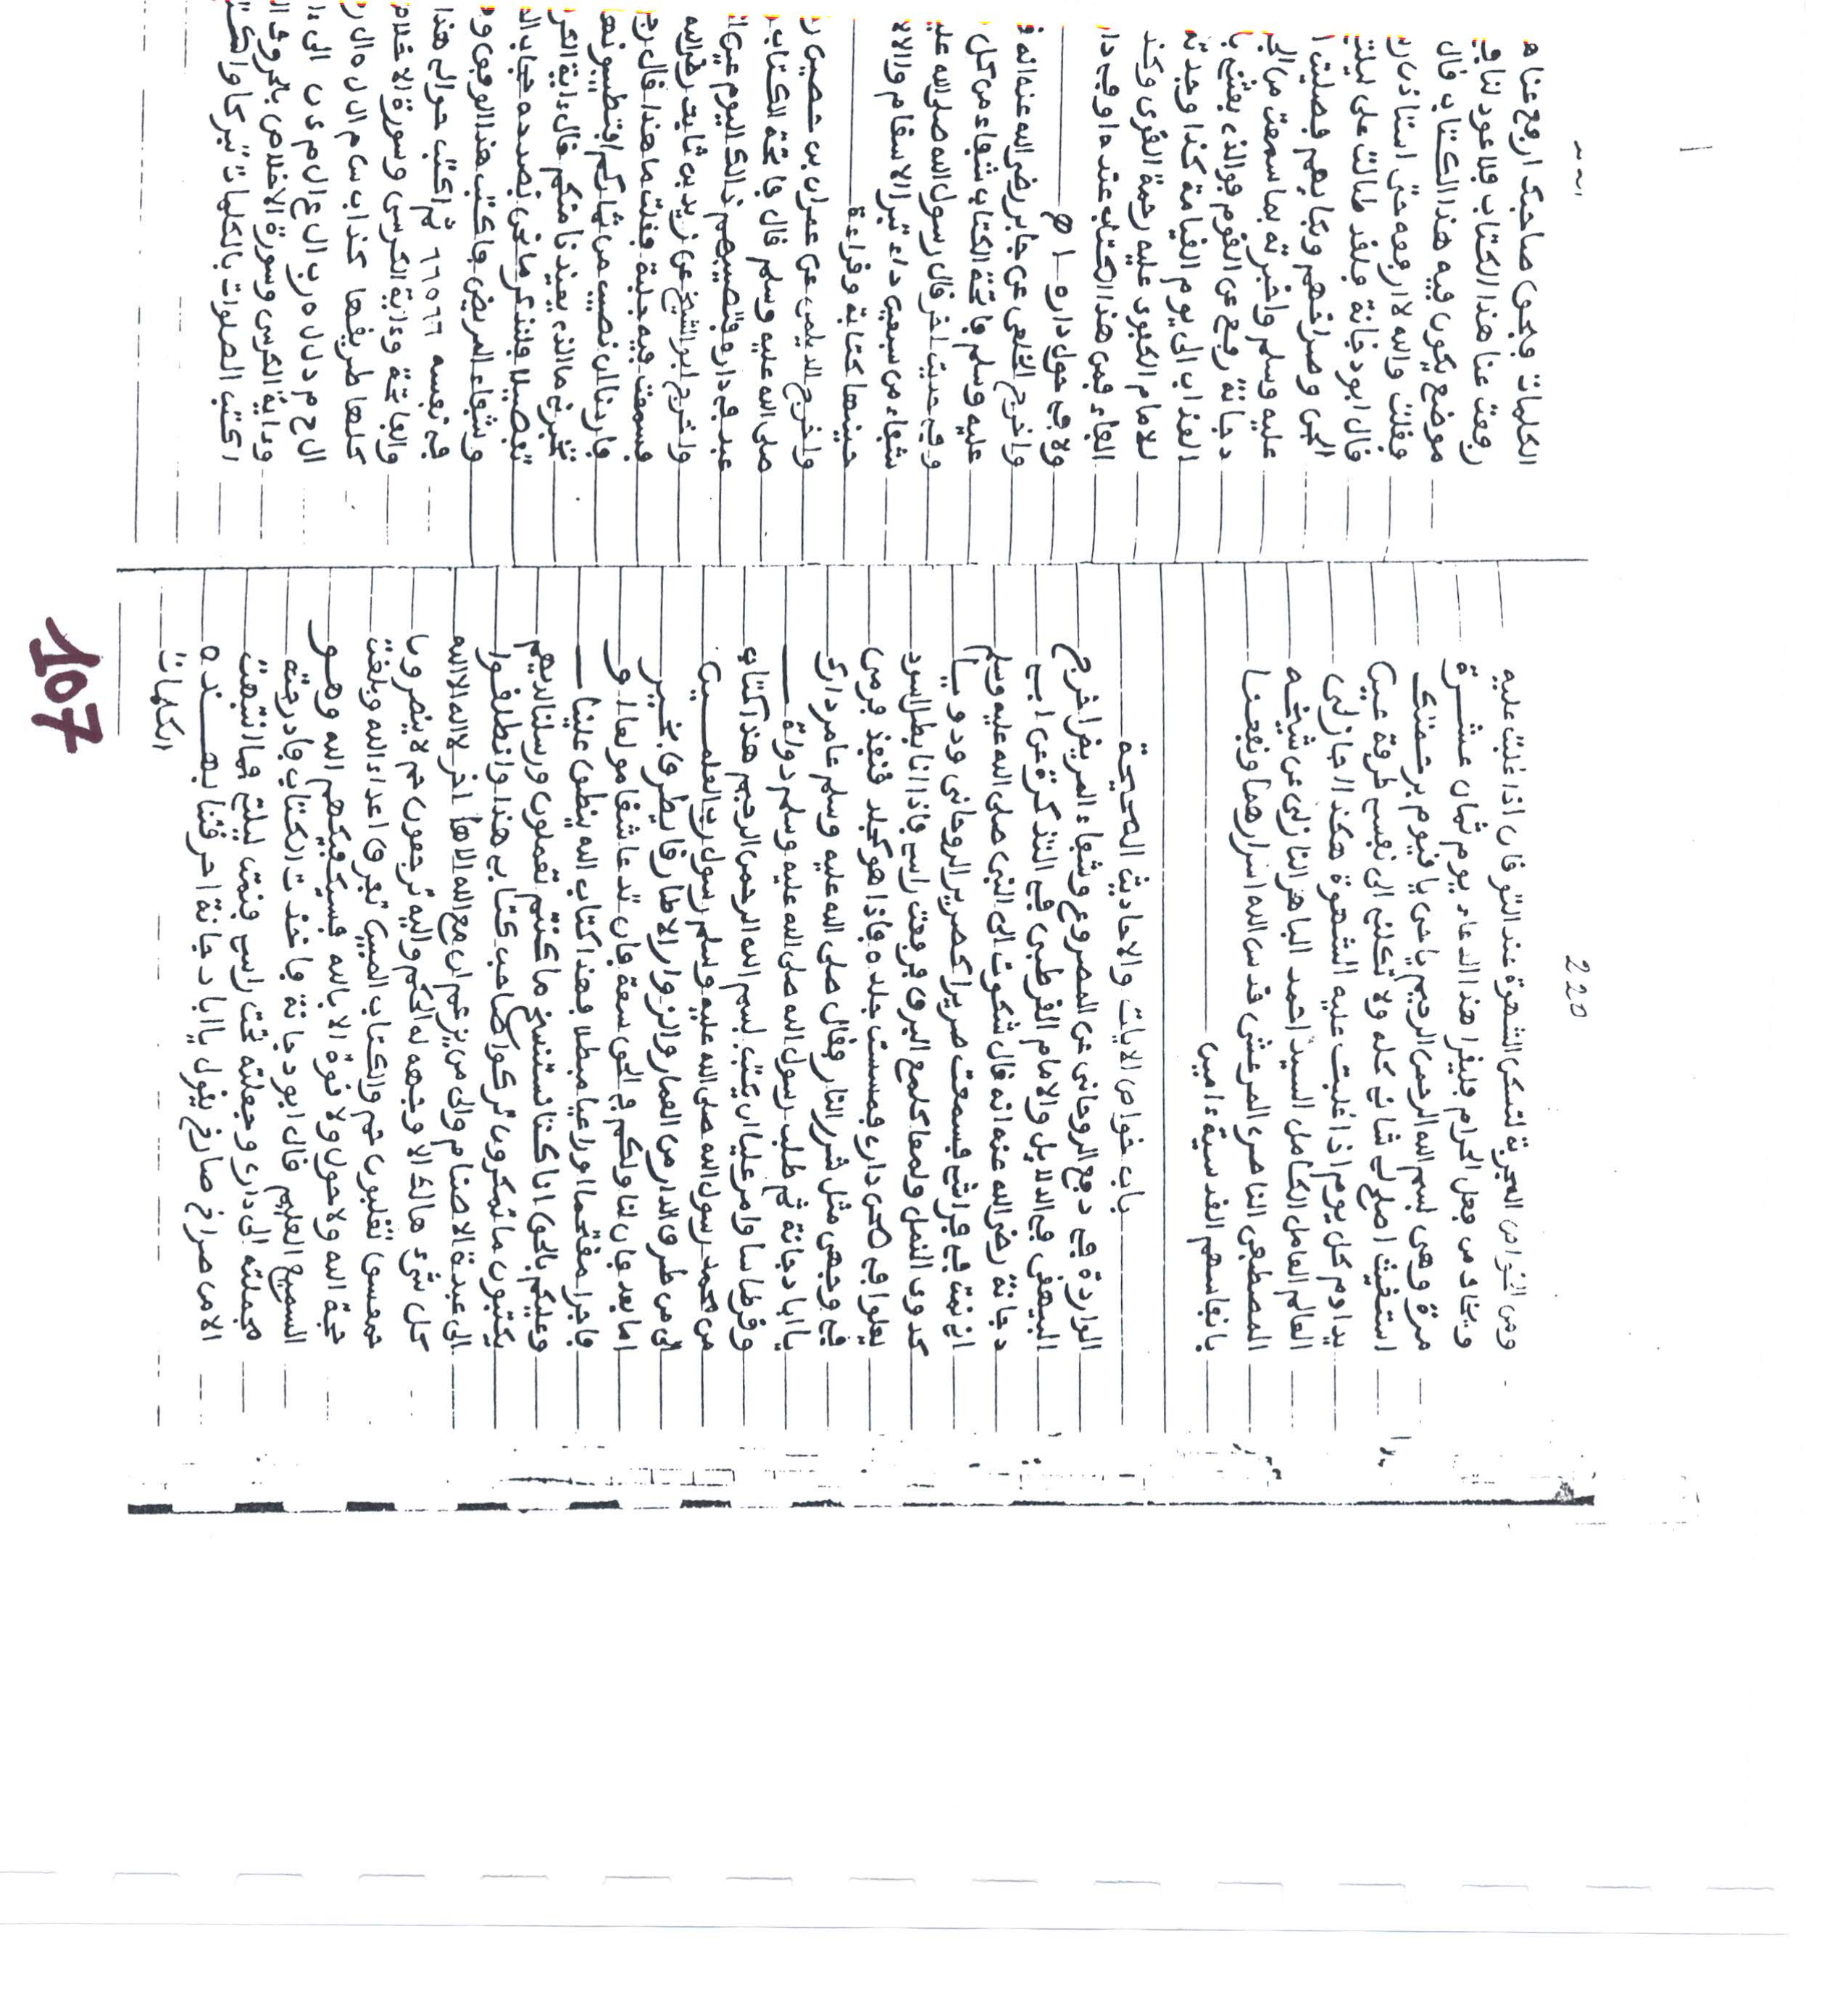 220
ومن الخواص المجربة لتسكن الشهوة عند التوقان اذا غلبت عليه
ويخاف من فعل الحرام فليقرا هذا الدعاء يوم ثمان عشـرة
مرة وهي بسم الله الرحمن الرحيم يا حي يا قيوم برحمتك
استغيث اصلح لي شاني كله ولا تكلني الى نفسي طرفة عين
يداوم كل يوم اذا غلبت عليه الشهوة هكذا اجازني
العالم العامل الكامل السيد احمد الباهر النازلي عن شيخه
المصطفى الناصر المرعشي قدس الله اسرارهما ونفعنا
بانفاسهم القدسية ءامين
باب خواص الايات والاحاديث الصحيحة
الواردة في دفع الروحاني عن المصروع وشفاء المريض اخرج
البيهقي في الدلايل والامام القرطبي في التذكرة عن ابي
دجانة رضي الله عنه انه قال شكوت الى النبي صلى الله عليه وسلم
اني نمت في فراشي فسمعت صريرا كصرير الروحاني ودويـا
كدوي النحل ولمعا كلمع البرق فرفعت راسي فاذا انا بظل اسود
يعلوا في صحن داري فمسست جلده فاذا هو كجلد قنفذ فرمى
في وجهي مثل شرر النار وقال صلى الله عليه وسلم عامر دارك
يا ابا دجانة ثم طلب رسول الله صلى الله عليه وسلم دواة
وقرطاسا وامر عليا ان يكتب بسم الله الرحمن الرحيم هذا كتاب
من محمد رسول الله صلى الله عليه وسلم رسول رب العلمـين
الى من طرق الدار من العمار والزوار الا طارقا يطرق بخير
اما بعد فان لنا ولكم في الحق سعة فان تك عاشقا مولعا او
فاجرا مقتحما او راعيا مبطلا فهذا كتاب الله ينطق علينا
وعليكم بالحق انا كنا نستنسخ ما كنتم تعملون ورسلنا لديهم
يكتبون ما تمكرون اتركوا صاحب كتابي هذا وانطلقوا
الى عبدة الاصنام والى من يزعم ان مع الله الاها اخر لا اله الا الله
كل شيء هالك الا وجهه له الحكم واليه ترجعون حم لا ينصرون
حمعسق تغلبون حم والكتاب المبين تفرق اعداء الله وبلغت
حجة الله ولا حول ولا قوة الا بالله فسيكفيكهم الله وهـو
السميع العليم قال ابو دجانة فاخذت الكتاب فادرجته
فحملته الى داري وجعلته تحت راسي فنمت ليلتي فما انتبهت
الا من صراخ صارخ يقول يا ابا دجانة احرقتنا بهـذه
الكلمات
107
الكلمات فبحق صاحبك ارفع عنا هـ
رفعت عنا هذا الكتاب فلا عود لنا في
موضع يكون فيه هذا الكتاب قال
فقلت والله لا رفعه حتى استاذن ر
قال ابو دجانة فلقد طالت علي ليلتي
الجن وصراخهم وبكايهم فصليت ا
عليه وسلم واخبرته بما سمعت من الجن
دجانة ارفع عن القوم فوالذي بعثني با
العذاب الى يوم القيامة كذا وجدته
للامام الكفوي عليه رحمة القوي وكذ
الفاء فمن هذا الكتاب عنده او في دار
ولا في حول داره
واخرج الخلعي عن جابر رضي الله عنه انه ق
عليه وسلم فاتحة الكتاب شفاء من كل
وفي حديث اخر قال رسول الله صلى الله عليه
شفاء من سبعين داء تبرا الاسقام والالا
حينها كتابة وقراءة
واخرج الديلمي عن عمران بن حصين ر
صلى الله عليه وسلم قال فاتحة الكتاب
عبد في دار فتصيبهم ذالك اليوم عين ا
واخرج ابو الشيخ عن زيد بن ثابت رضي الله
فسمعت فيه جلبة فقلت ما هذا قال رج
فاردنا ان نصيب من ثماركم افتطيبونها
تخبرني ما الذي يعيذنا منكم قال ءاية الكر
تفصيلا فلنذكر ما نحن بصدده حجاب الد
وشفاء المريض فاكتب هذا الوفق و
في نفسه ٦٦٥٦٦ ثم اكتب حوالي هذا
والفاتحة وءاية الكرسي وسورة الاخلاص
وءاية الكرسي وسورة الاخلاص بالحروف ا
اكتب الصلوات بالكلمات تبركا واكت